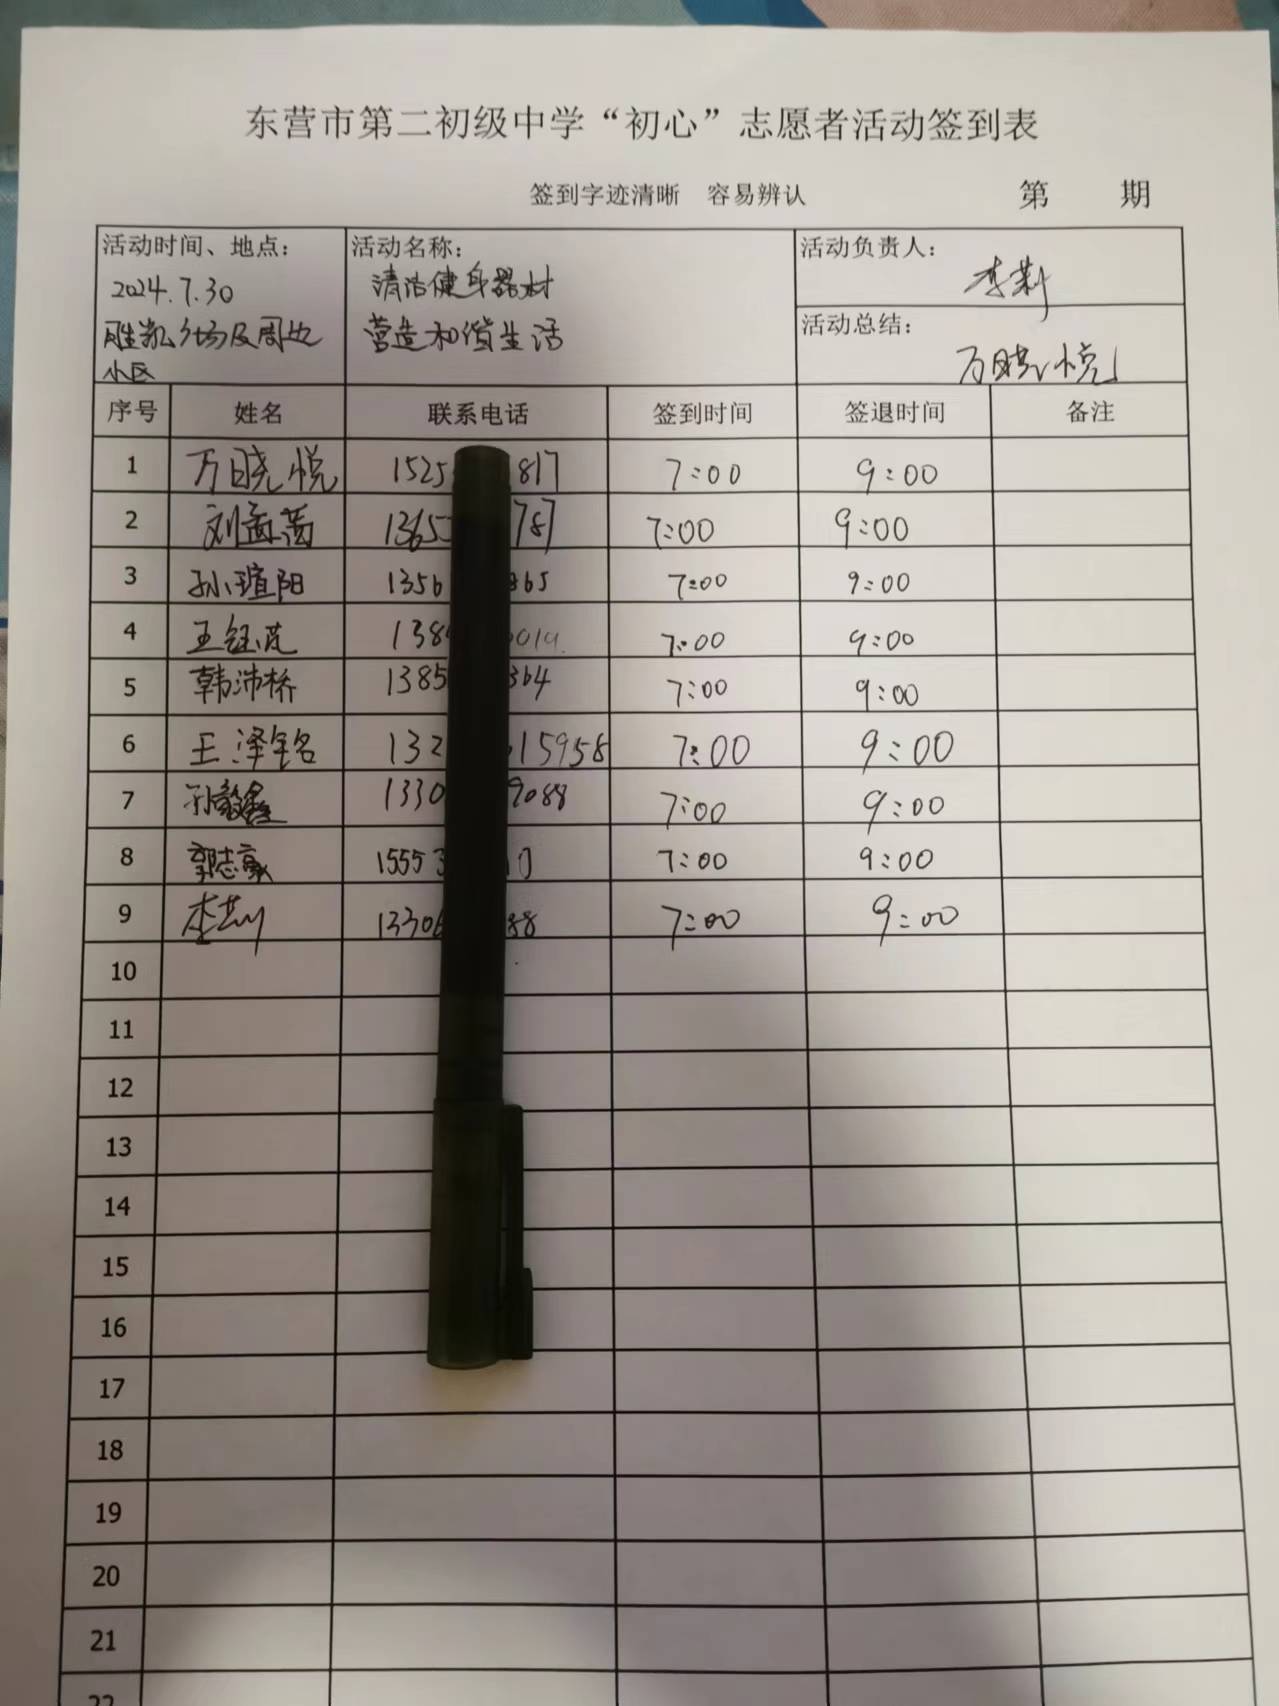 东营市第二初级中学“初心”志愿者活动签到表
签到字迹清晰 容易辨认 第 期
活动时间、地点：
2024.7.30
胜凯广场及周边
小区
活动名称：
清洁健身器材
营造和谐生活
活动负责人：
李莉
活动总结：
万晓悦
序号 姓名 联系电话 签到时间 签退时间 备注
1 万晓悦 1525 817 7:00 9:00
2 刘孟茜 1365 787 7:00 9:00
3 孙瑄阳 1356 865 7:00 9:00
4 王钰 138 7:00 9:00
5 韩沛桥 1385 364 7:00 9:00
6 王泽铭 132 15958 7:00 9:00
7 孙毅鑫 1330 9088 7:00 9:00
8 郭志豪 15553 7:00 9:00
9 李莉 1330 88 7:00 9:00
10
11
12
13
14
15
16
17
18
19
20
21
22